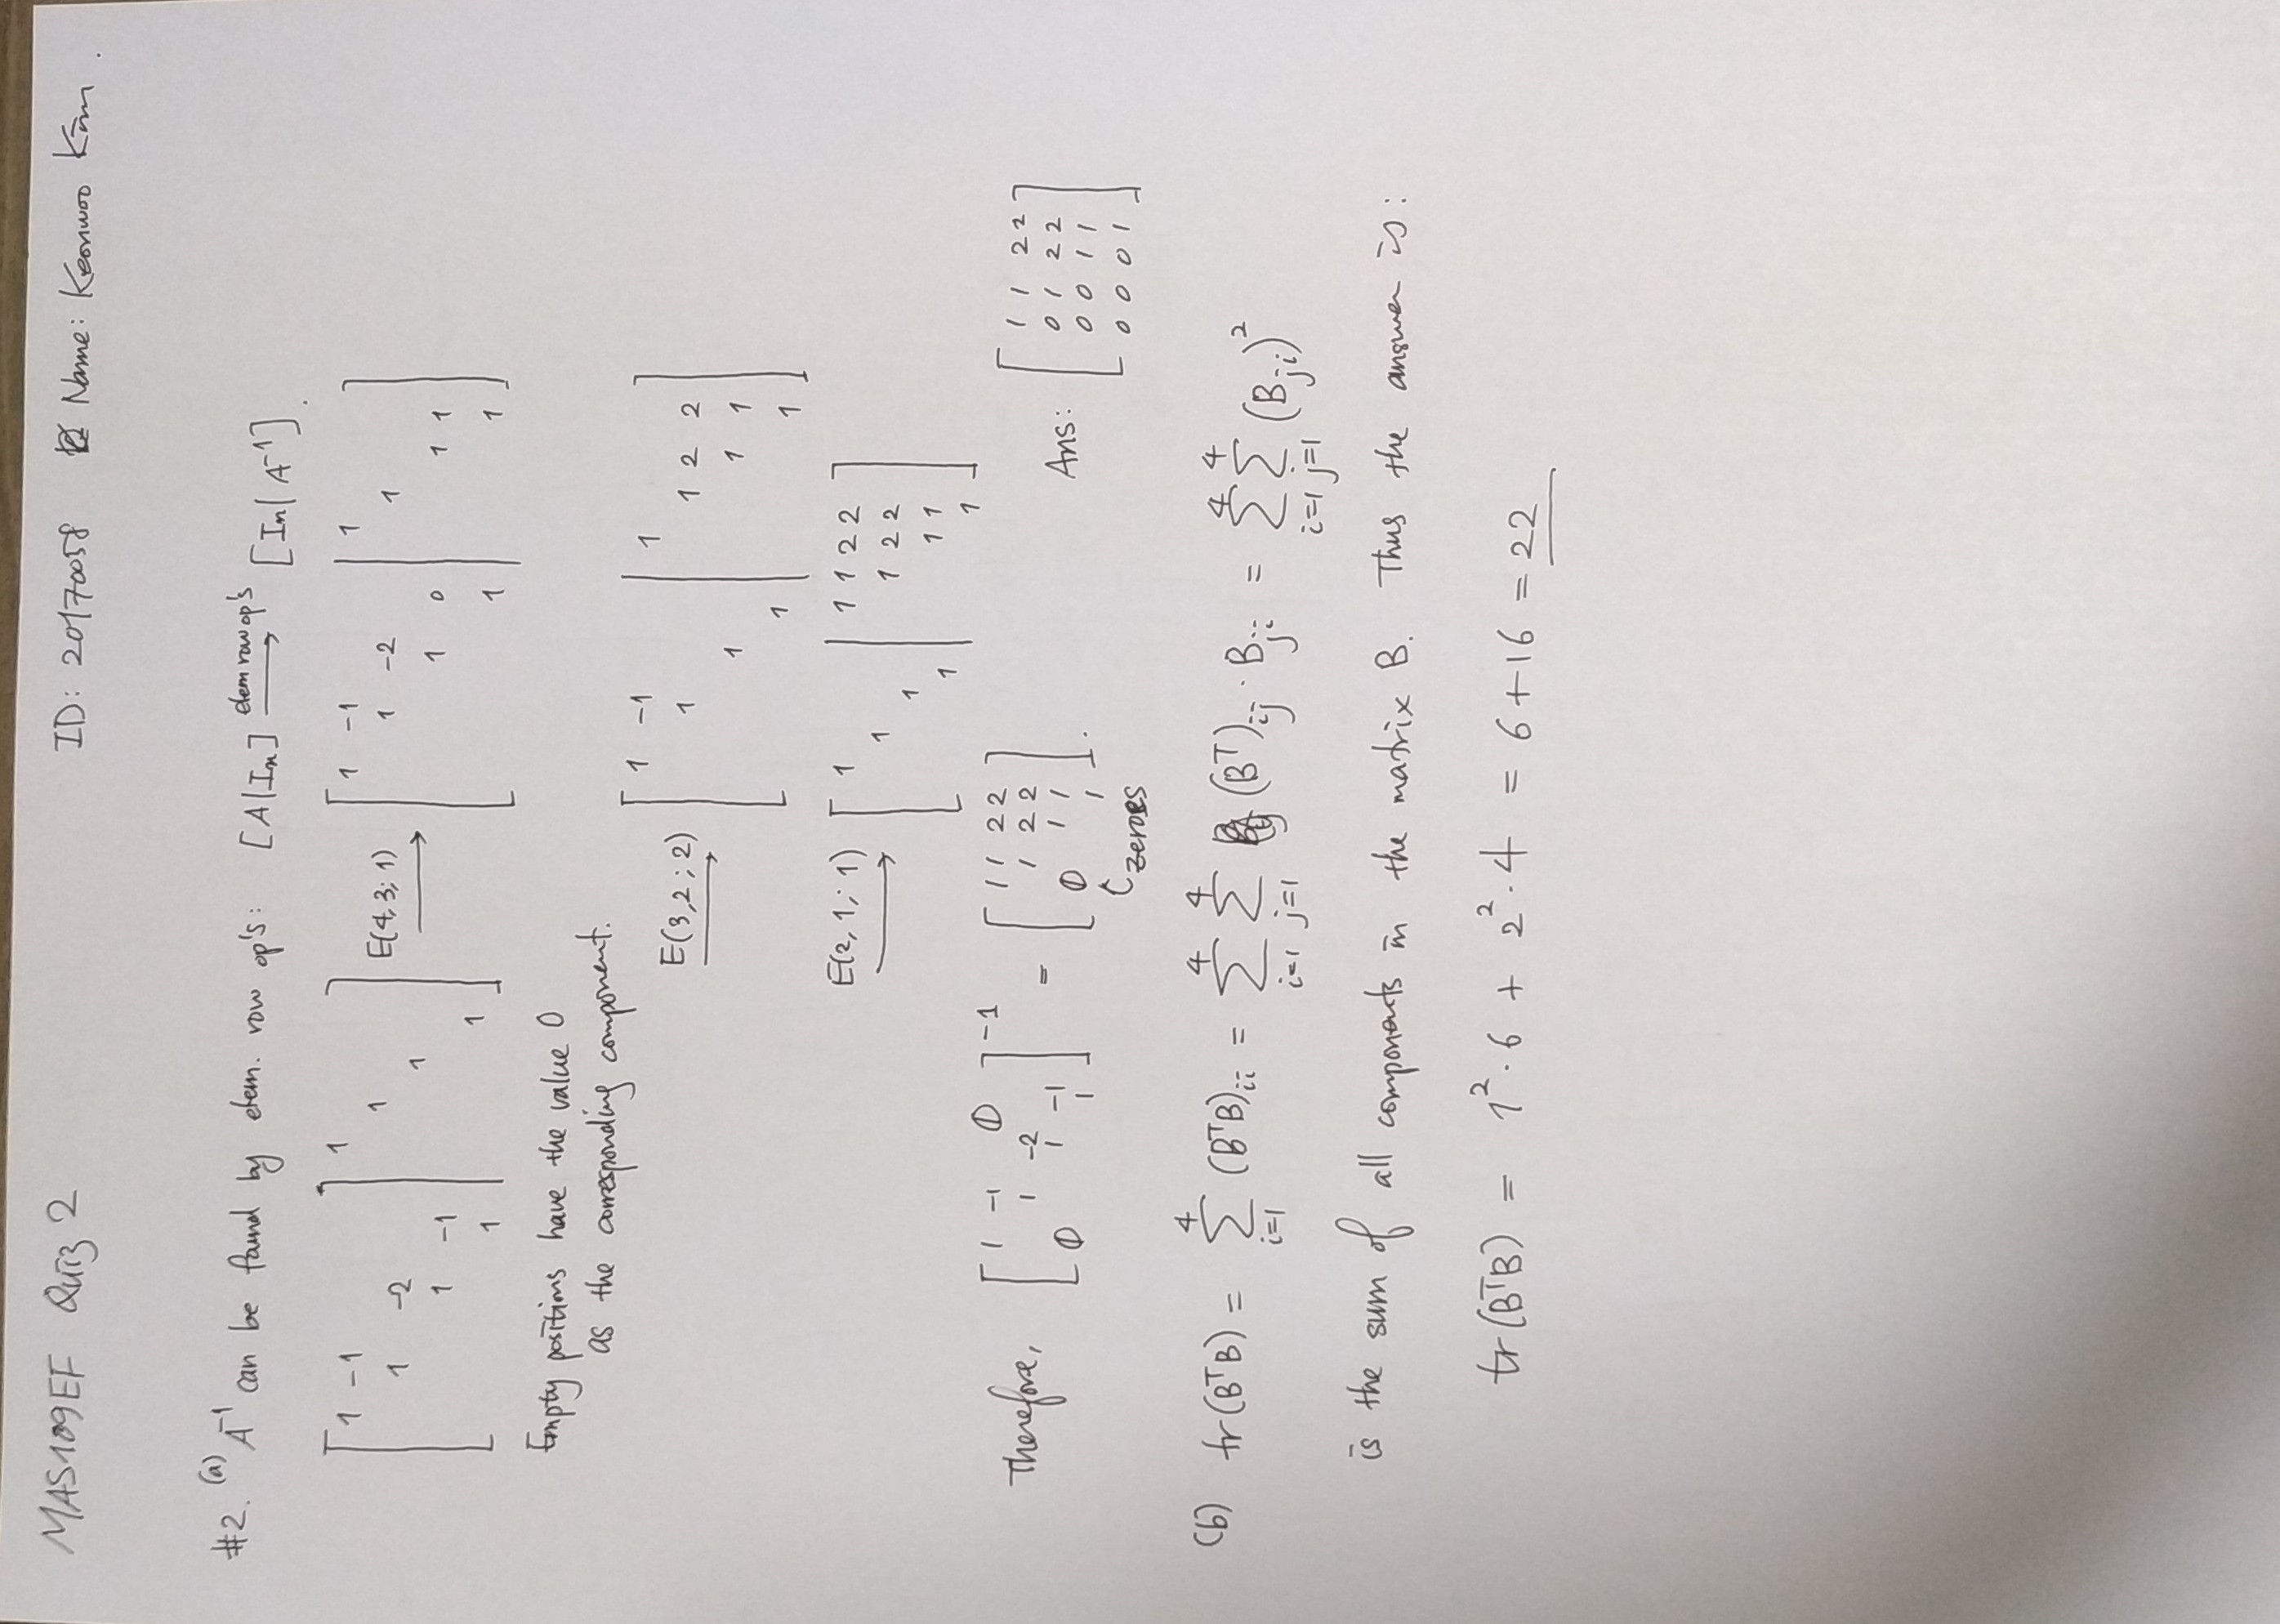 MAS109EF Quiz 2 ID: 20170058 Name: Keonwoo Kim.
#2. (a) A⁻¹ can be found by elem. row op's: [A|Iₙ] elem row op's → [Iₙ| A⁻¹].
[ 1 -1 | 1 ] E(4,3; 1) → [ 1 -1 | 1 ]
[ 1 -2 | 1 ] [ 1 -2 | 1 ]
[ 1 -1 | 1 ] [ 1 0 | 1 1 ]
[ 1 | 1 ] [ 1 | 1 ]
Empty positions have the value 0
as the corresponding component.
E(3,2; 2) → [ 1 -1 | 1 ]
[ 1 | 1 2 2 ]
[ 1 | 1 1 ]
[ 1 | 1 ]
E(2, 1; 1) → [ 1 | 1 1 2 2 ]
[ 1 | 1 2 2 ]
[ 1 | 1 1 ]
[ 1 | 1 ]
Therefore, [ 1 -1 0 ]⁻¹ = [ 1 1 2 2 ]. Ans: [ 1 1 2 2 ]
[ 1 -2 ] [ 1 2 2 ] [ 0 1 2 2 ]
[ 0 1 -1 ] [ 0 1 1 ] [ 0 0 1 1 ]
[ 1 ] [ 1 ] [ 0 0 0 1 ]
zeroes
(b) tr(BᵀB) = ∑_{i=1}^{4} (BᵀB)ᵢᵢ = ∑_{i=1}^{4} ∑_{j=1}^{4} (Bᵀ)ᵢⱼ · Bⱼᵢ = ∑_{i=1}^{4} ∑_{j=1}^{4} (Bⱼᵢ)²
is the sum of all components in the matrix B. Thus the answer is:
tr(BᵀB) = 1²·6 + 2²·4 = 6+16 = 22